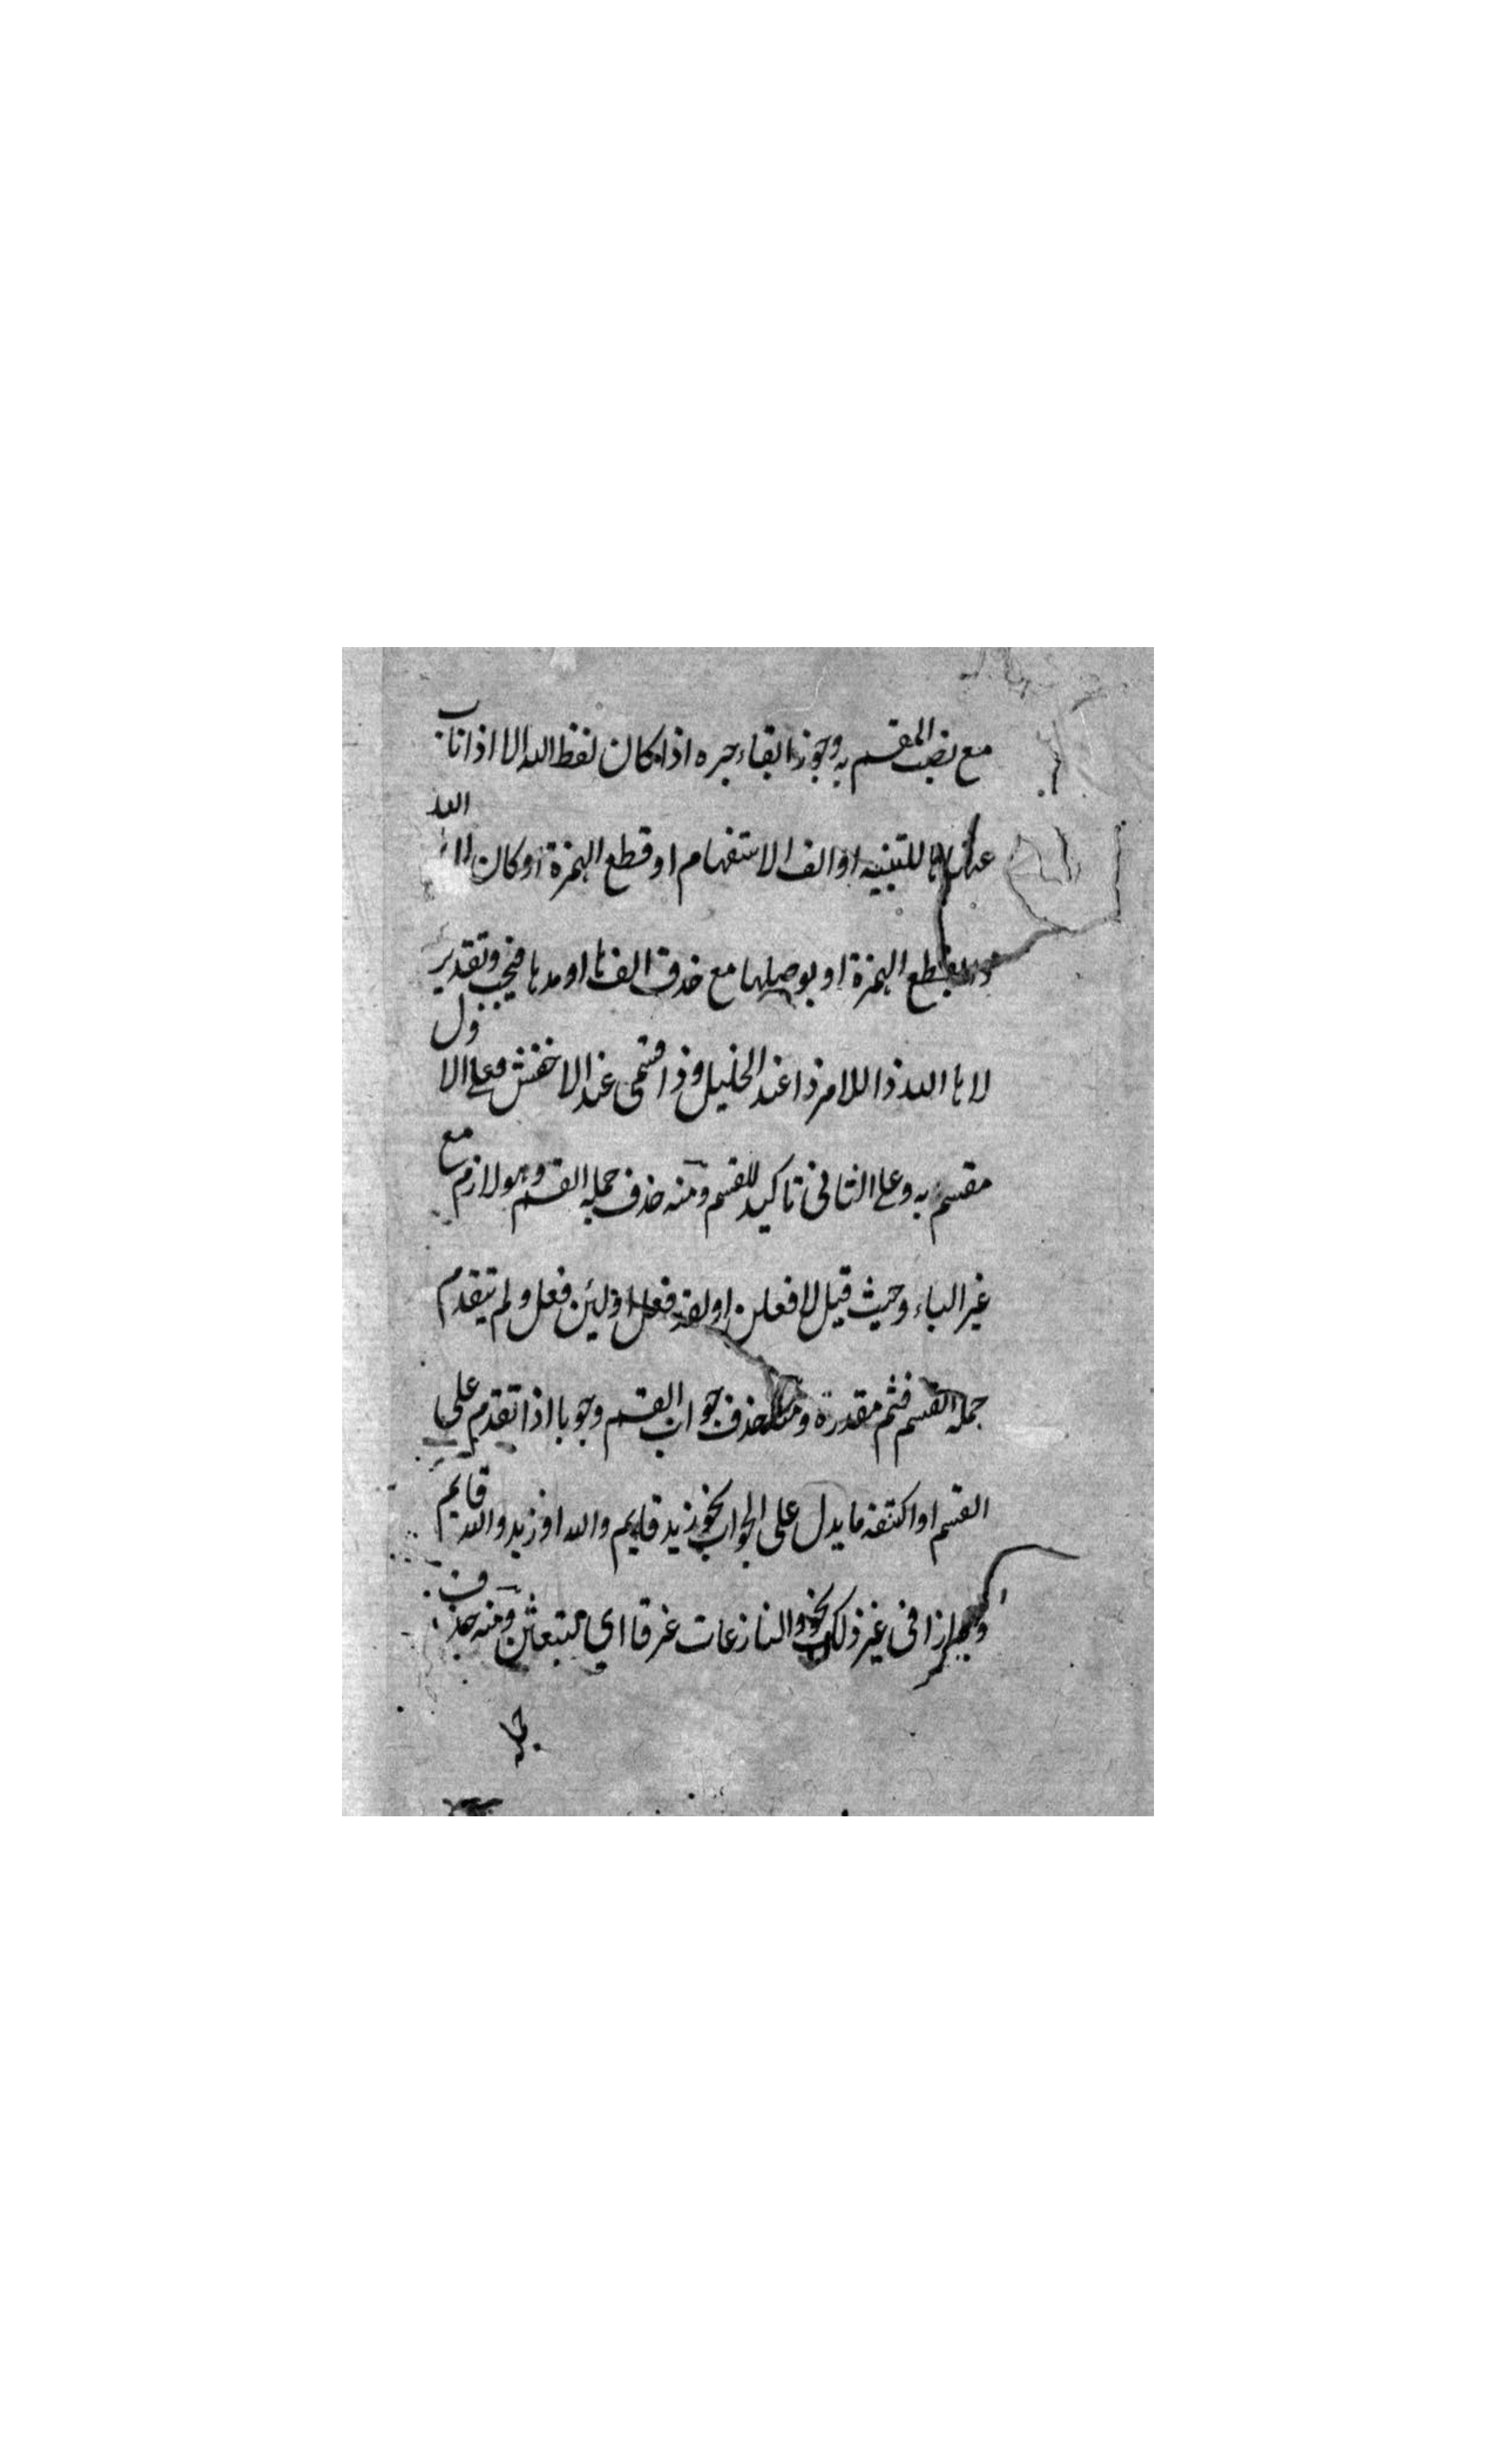 مع نصب المقسم به وجوز ابقاء جره اذا كان لفظ الله الا اذا ناب
عنها ها للتنبيه او الف الاستفهام او قطع الهمزة او كان الله
بقطع الهمزة او بوصلها مع حذف الف ها او مدها فيجب وتقدير
لا ها الله ذا للامر ذا عند الخليل وذا قسمى عند الاخفش فعلى الاول
مقسم به وعلى الثانى تاكيد للقسم ومنه حذف جملة القسم وهو لازم مع
غير الباء وحيث قيل لافعلن او لقد فعل او لئن فعل ولم يتقدم
جملة القسم فثم مقدرة ومنه حذف جواب القسم وجوبا اذا تقدم على
القسم او اكتنفه ما يدل على الجواب نحو زيد قايم والله او زيد والله قايم
وجوازا فى غير ذلك نحو والنازعات غرقا اي لتبعثن ومنه حذف
جملة